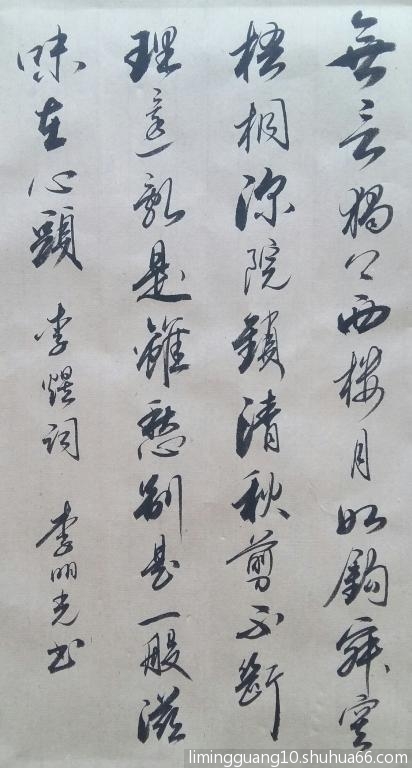 無言獨上西樓月如鉤寂寞
梧桐深院鎖清秋剪不斷
理還亂是離愁別是一般滋
味在心頭 李煜詞 李明光书
limingguang10.shuhua66.com